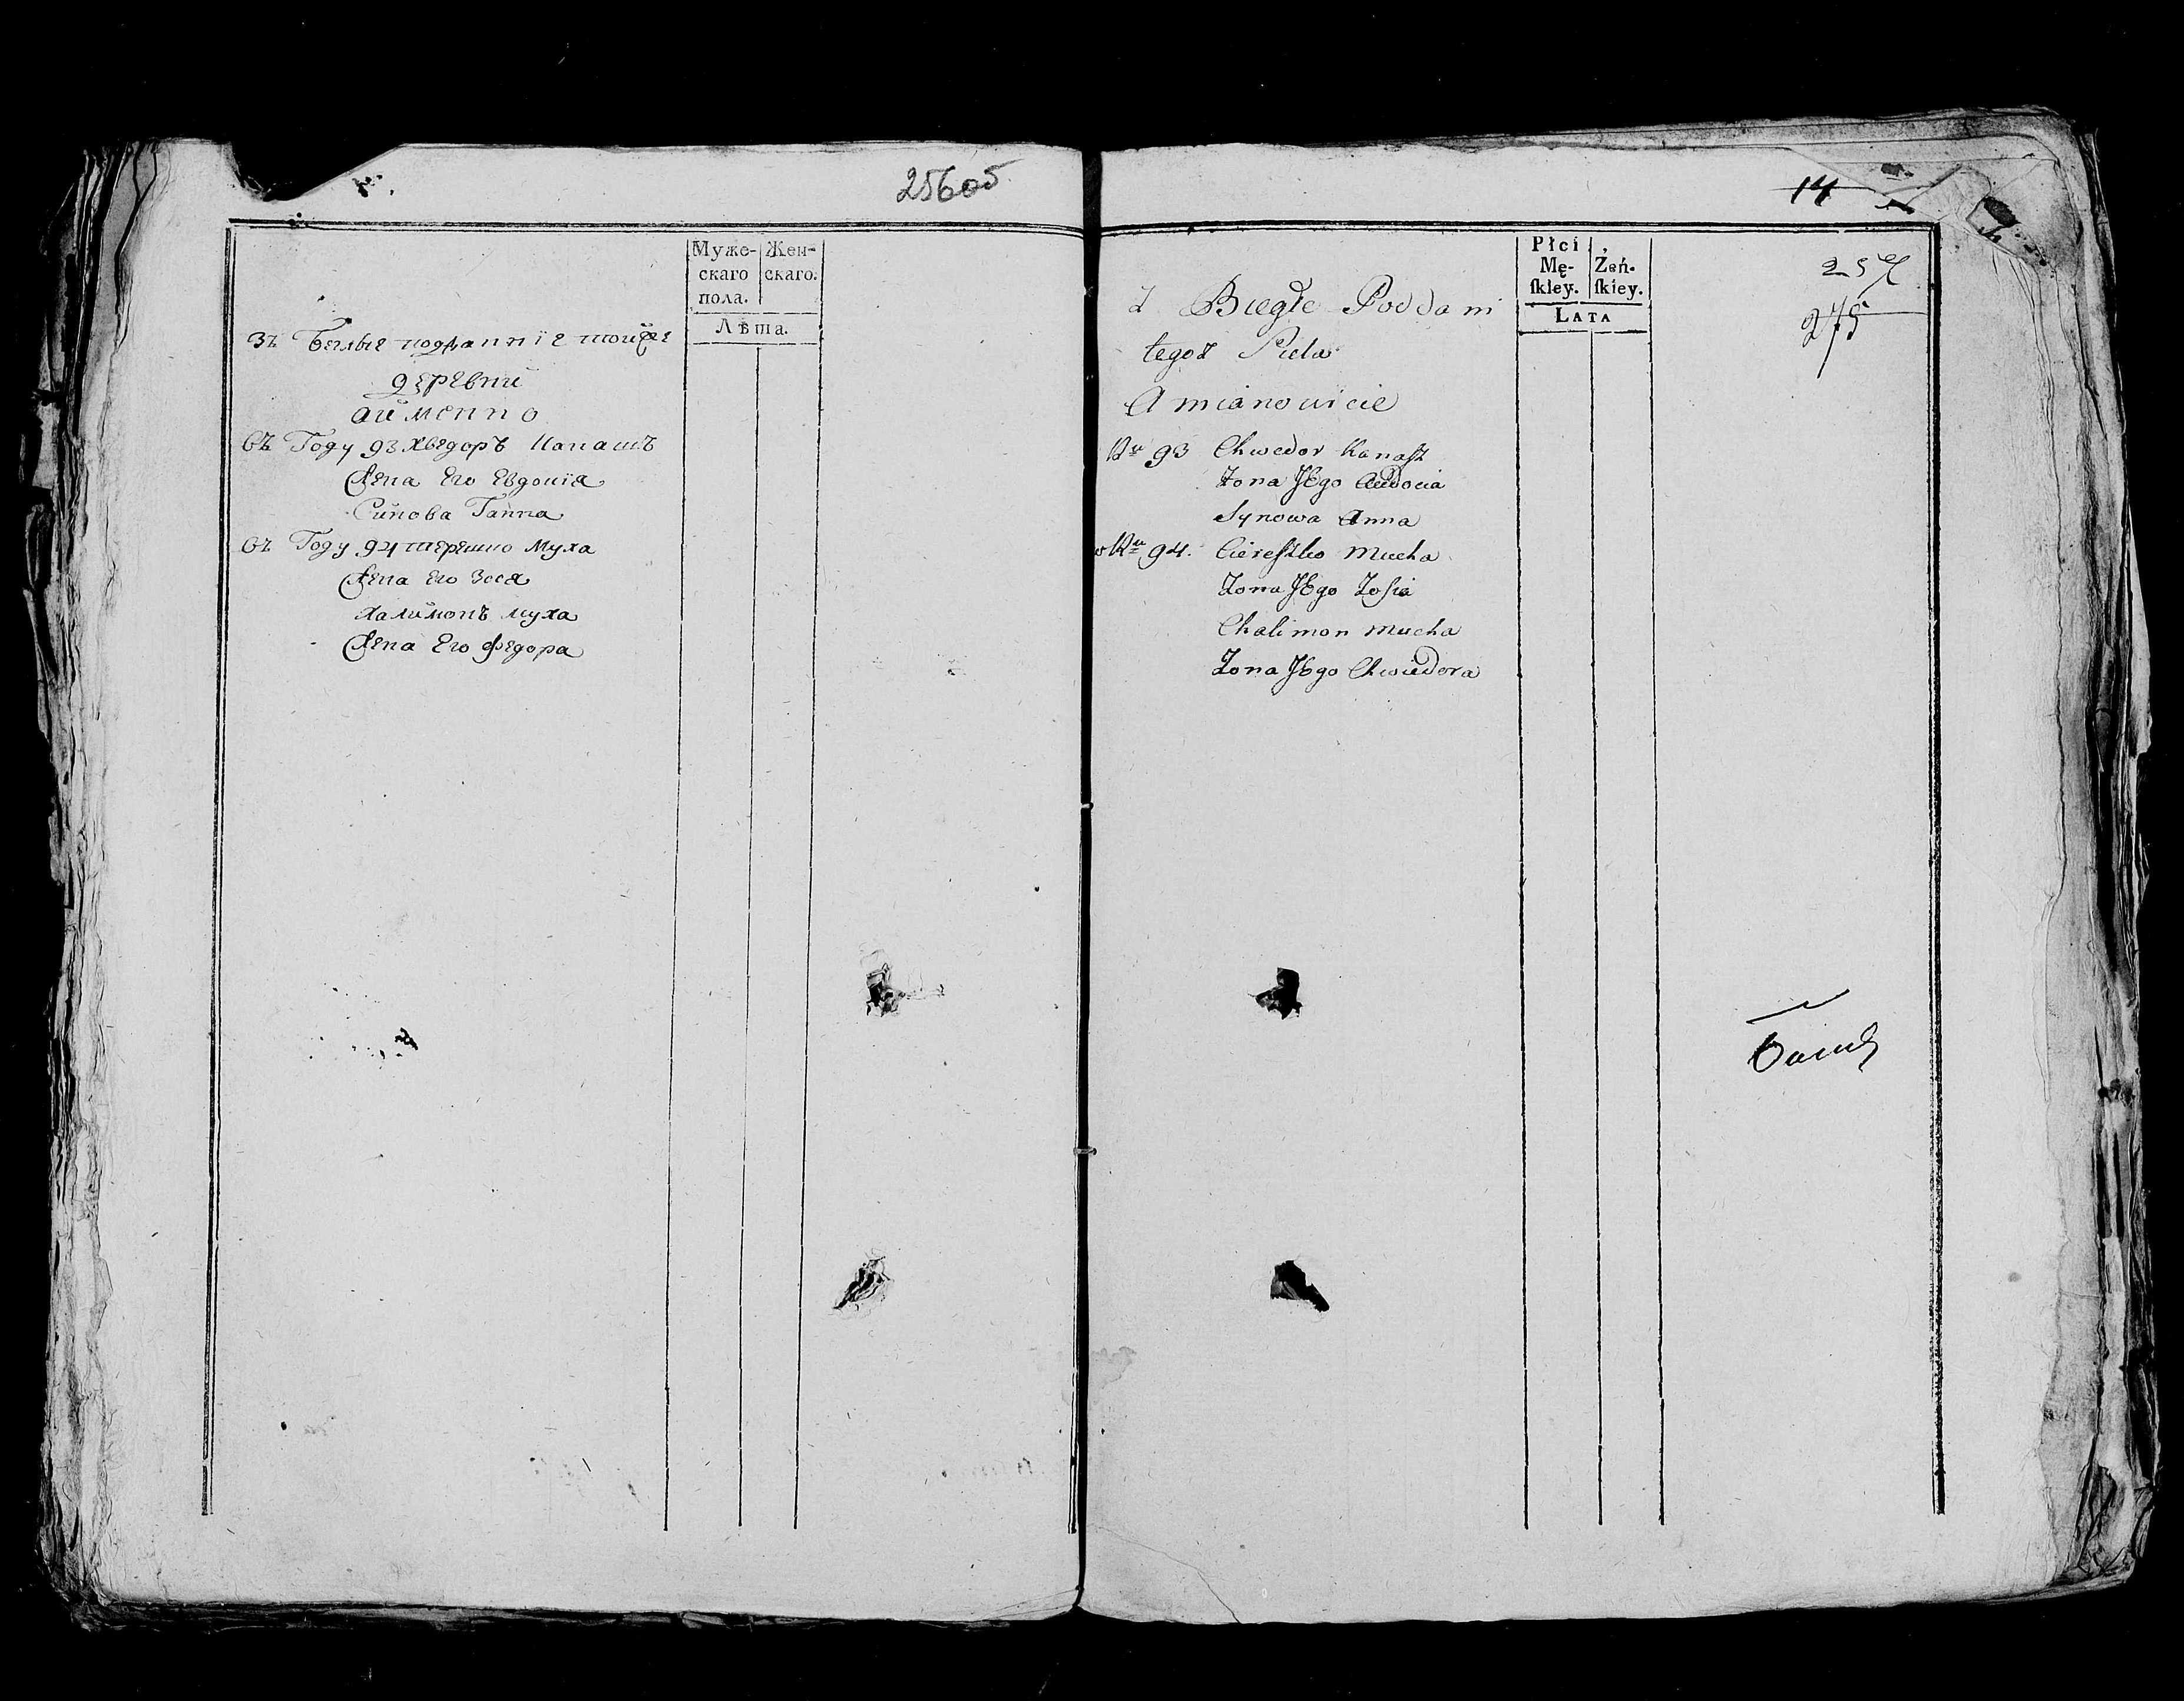 256об
Муже-
скаго
пола.
Жен-
скаго.
Лѣта.
Зъ Беглые подданніе тойже
деревни
аименно
въ Году 93 Хведоръ Канашъ
Жена Его Евдокія
Синова Ганна
въ Году 94 терешко Муха
Жена Его Зося
Халимонъ муха
Жена Его Федора
14
257
275
Płci
Mę-
ſkiey.
Żeń-
ſkiey.
LATA
Z Biegłe Poddani
tegoż Sieła
Amianowicie
Rᵘ 93 Chwedor Kanaſz
Żona Jego Audocia
Synowa Anna
w Rᵘ 94. Ciereſzko Mucha
Żona Jego Zoſia
Chalimon Mucha
Żona Jego Chwiedora